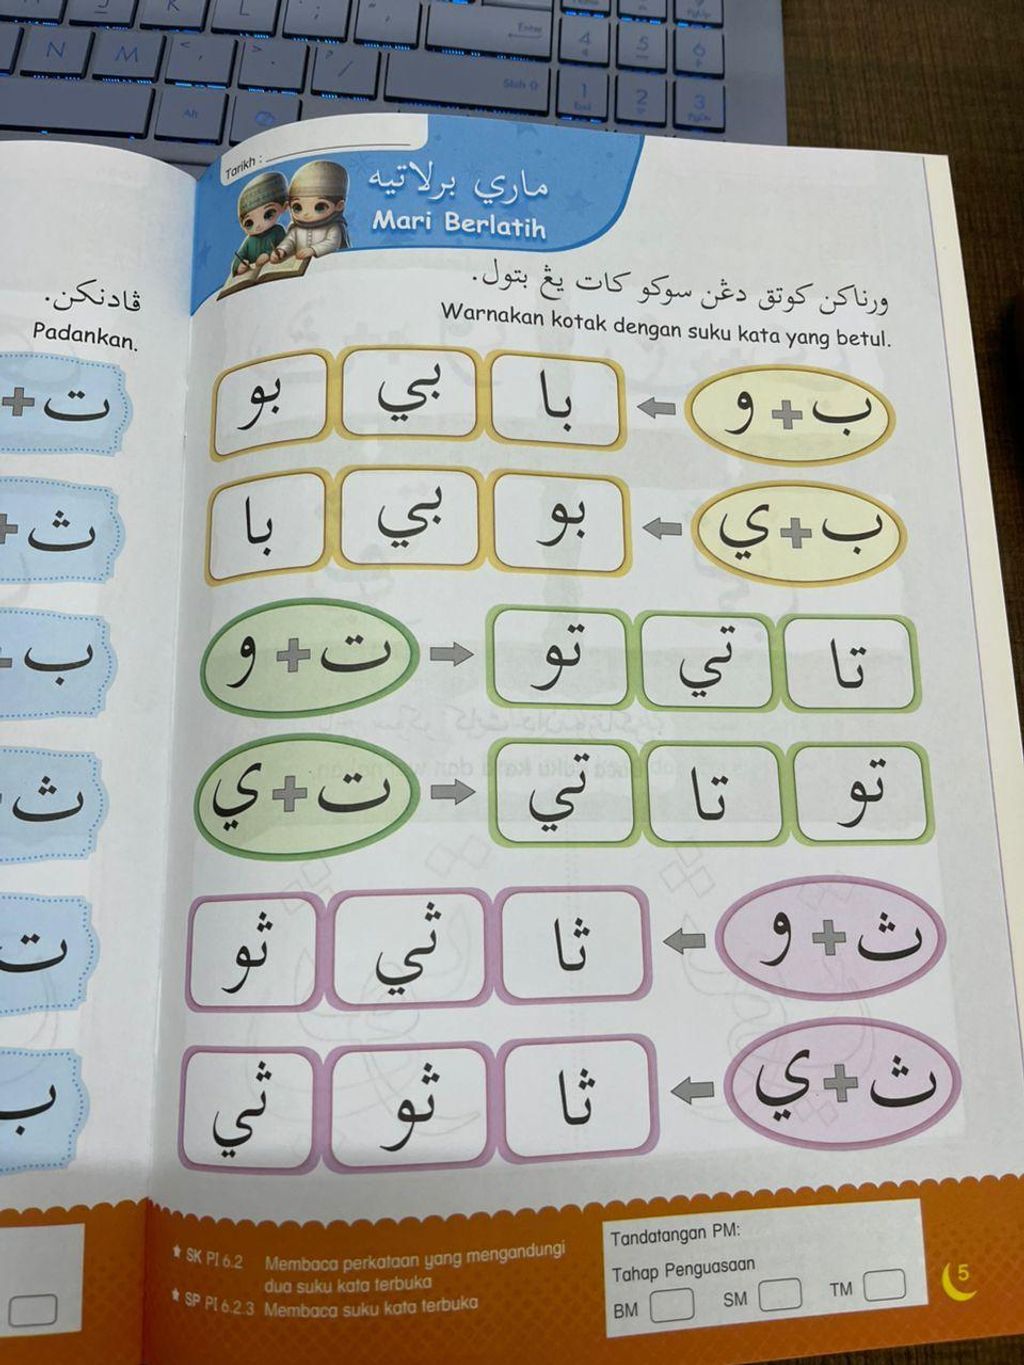 K L ; '
N M < , > . / ?
Enter 4 5 6 PgUp
Shift 1 End 2 3 PgDn
Alt
Tarikh :
ماري برلاتيه
Mari Berlatih
ورناکن کوتق دڠن سوکو کات يڠ بتول.
Warnakan kotak dengan suku kata yang betul.
ب + و با بي بو
ب + ي بو بي با
ت + و تو تي تا
ت + ي تي تا تو
ث + و ثا ثي ثو
ث + ي ثا ثو ثي
ڤادنکن.
Padankan.
ت +
ث +
ب
ث
ت
ب
SK PI 6.2 Membaca perkataan yang mengandungi
dua suku kata terbuka
SP PI 6.2.3 Membaca suku kata terbuka
Tandatangan PM:
Tahap Penguasaan
BM SM TM
5